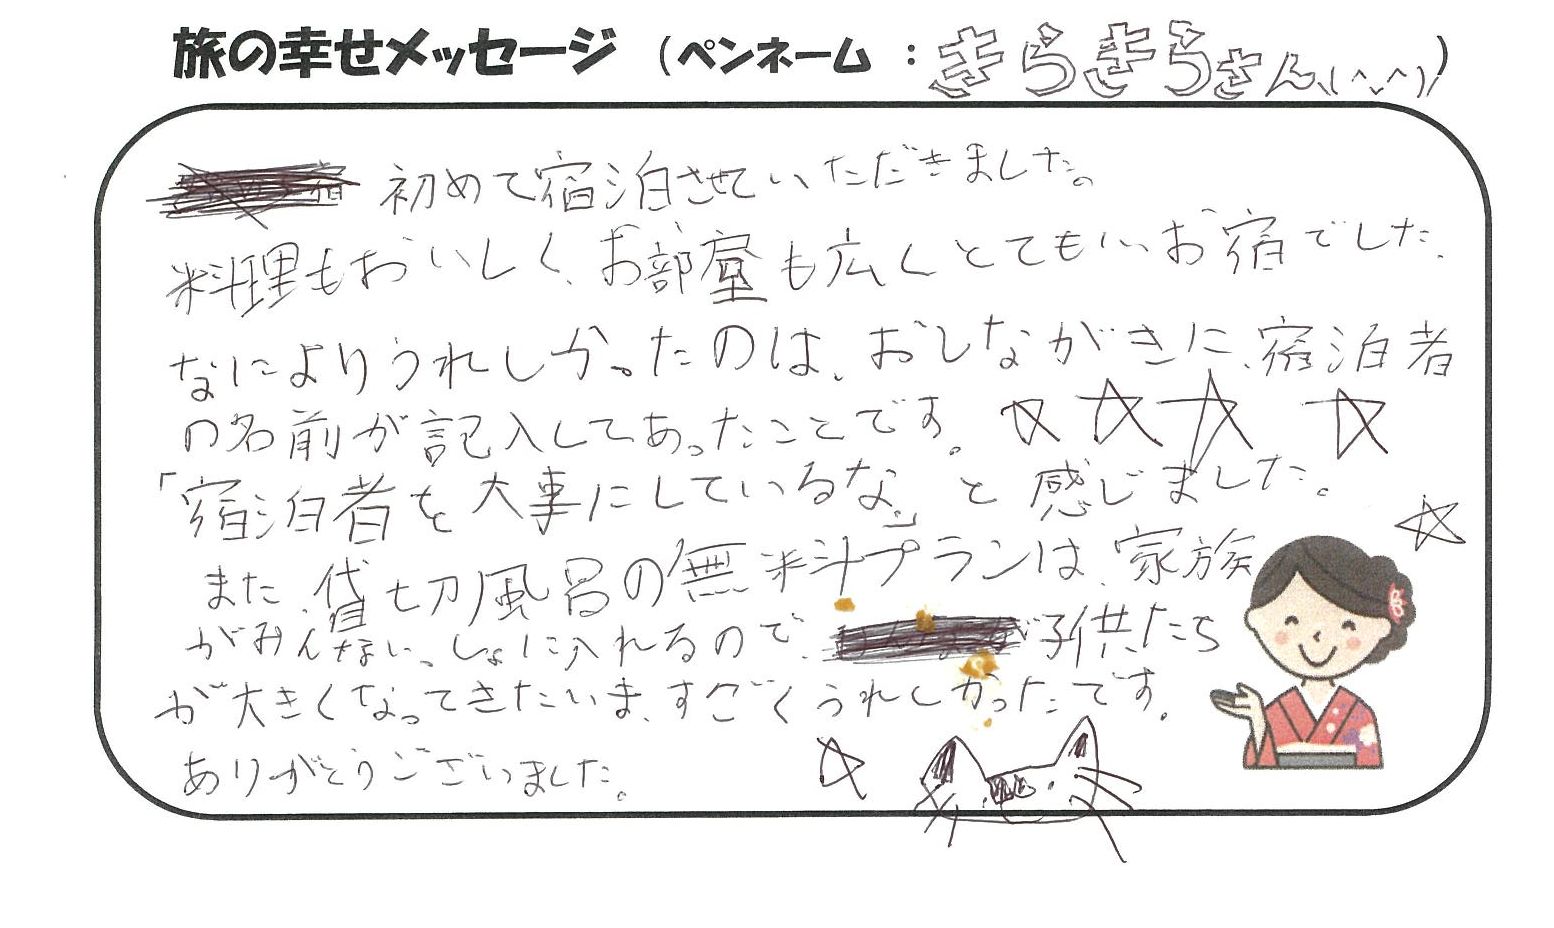 旅の幸せメッセージ (ペンネーム : きらきらさん(^ᴗ^))
初めて宿泊させていただきました。
料理もおいしく、お部屋も広くとてもいいお宿でした。
なによりうれしかったのは、おしながきに、宿泊者
の名前が記入してあったことです。☆☆☆ ☆
「宿泊者を大事にしているな。」と感じました。
また、貸切風呂の無料プランは、家族
がみんないっしょに入れるので、子供たち
が大きくなってきたいま、すごくうれしかったです。
ありがとうございました。